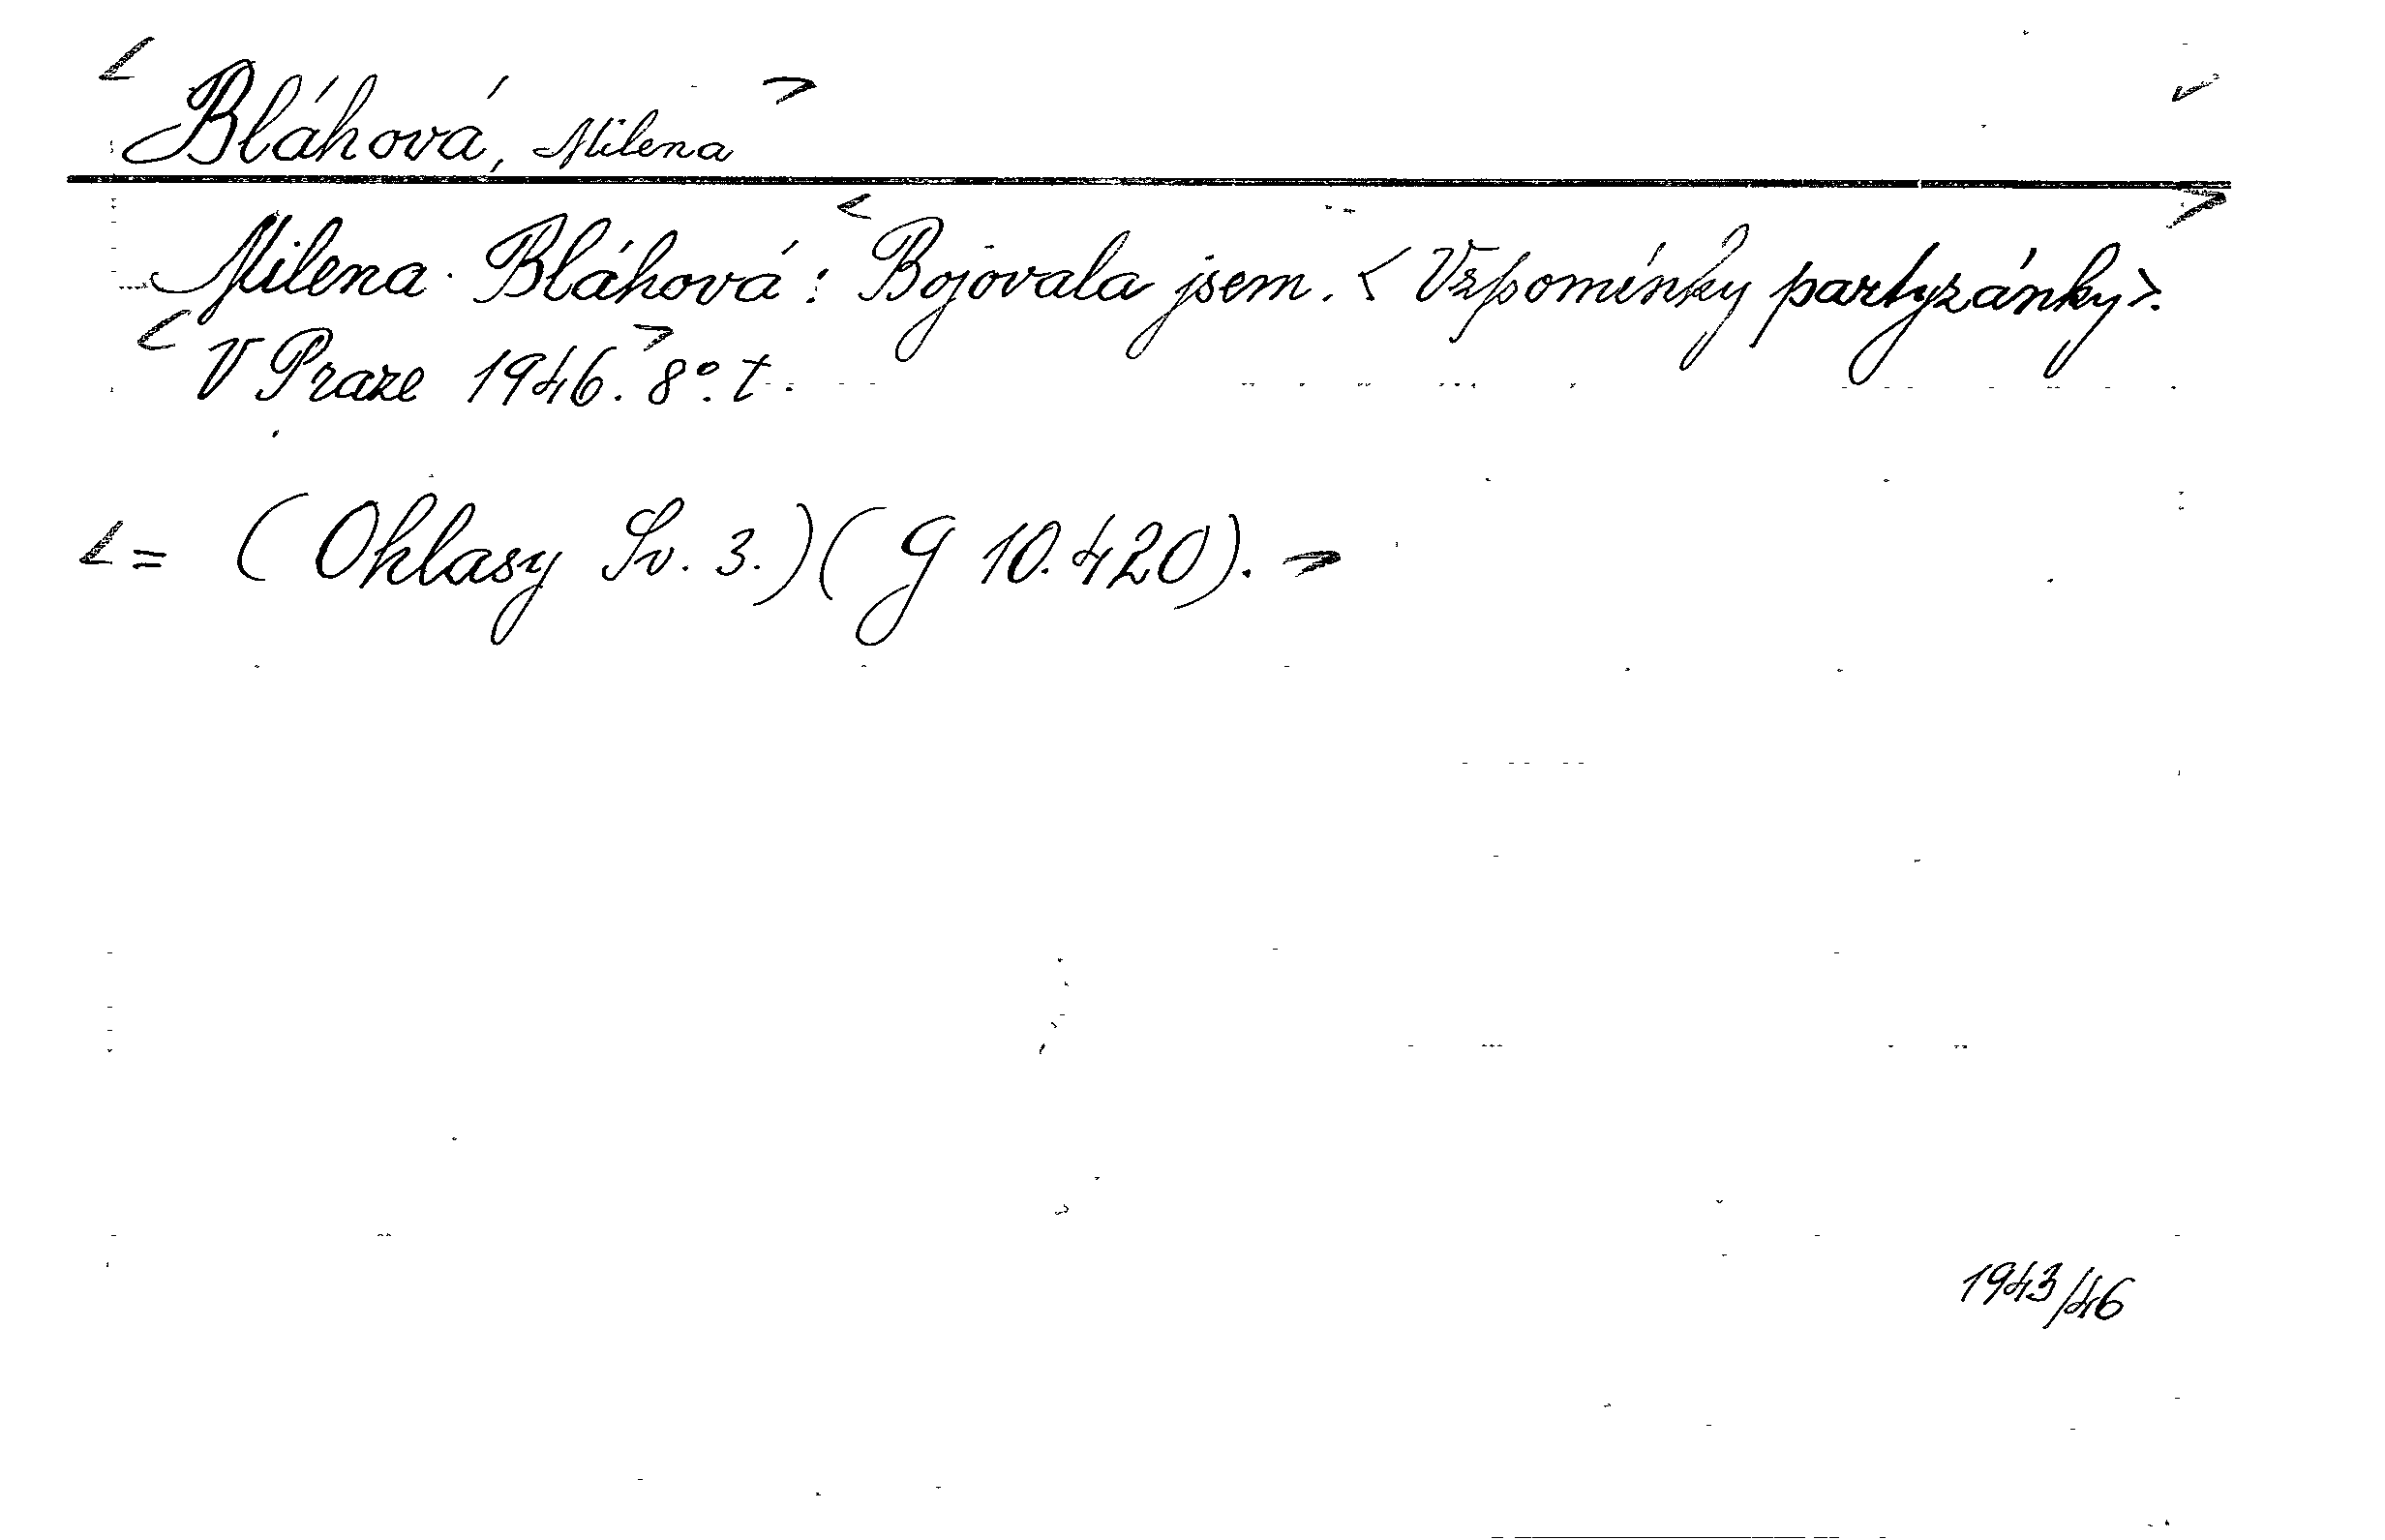 < Bláhová, Milena >
Milena Bláhová: < Bojovala jsem. < Vzpomínky partyzánky>. >
< V Praze 1946. > 8°. t.
< = (Ohlasy Sv. 3.) (G 10.420). >
1943/46